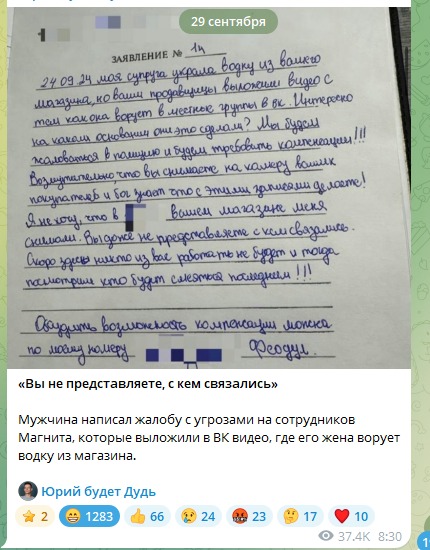 29 сентября
ЗАЯВЛЕНИЕ № 14
24 09.24 моя супруга украла водку из вашего
магазина, но ваши продавцицы выложили видео с
тем как она ворует в местные группы в вк. Интересно
на каком основании они это сделали? Мы будем
жаловаться в полицию и будем требовать компенсации!!!
Возмутительно что вы снимаете на камеру ваших
покупателей и бог знает что с этими записями делаете!
Я не хочу, что в вашем магазине меня
снимали. Вы даже не представляете с кем связались.
Скоро здесь никто из вас работать не будет и тогда
посмотрим кто будет смеяться последнем!!!
Обсудить возможность компенсации можно
по моему номеру Феодул.
«Вы не представляете, с кем связались»
Мужчина написал жалобу с угрозами на сотрудников
Магнита, которые выложили в ВК видео, где его жена ворует
водку из магазина.
Юрий будет Дудь
2 1283 66 24 23 17 10
37.4K 8:30